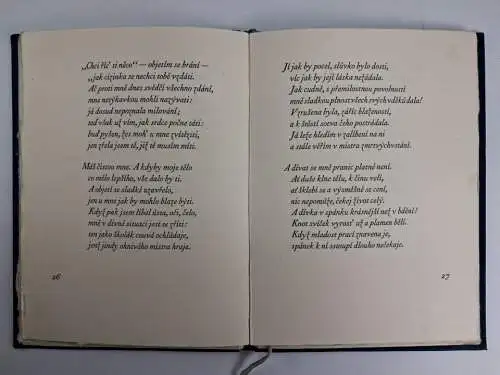 „Chci říc' ti něco" — objetím se brání —
„jak cizinka se nechci tobě vzdáti.
Ač proti mně dnes svědčí všechno zdání,
mne netýkavkou mohli nazývati:
já dosud nepoznala milování;
teď však už vím, jak srdce počne táti:
buď pyšen, žes moh' u mne zvítězit,
jen zda jsem tě, jíž tě musím míti.
Máš čistou mne. A kdyby moje tělo
co mělo lepšího, vše dalo by ti.
A objetí se sladké uzavřelo,
jen u mns jak by mohlo blaze býti.
Když pak jsem líbal ústa, oči, čelo,
mně v divné situaci jest se zříti:
ten jako školák znová ochládaje,
jenž jindy ohnivého mistra hraje.
26
Jí jak by pocel, slůvko bylo dosti,
víc jak by její láska nežádala.
Jak cudně, s přemilostnou povolností
mně sladkou plnost všech svých vděků dala!
Vzrušena byla, záříc blažeností,
a k štěstí sotva čeho postrádala.
Já leže hledím v zalíbení na ni
a stále věřím v mistra zmrtvýchvstání.
A dívat se mně pranic platné není.
Ať duše klne tělu, k činu velí,
ať šklebí se a výsměšně se cení,
nic nepomůže, čekej život celý.
A dívka v spánku krásnější než v bdění!
Knot svíček vyrost' už a plamen bělí.
Když mladost prací znavena je,
spánek k ní sstoupí dlouho nečekaje.
27